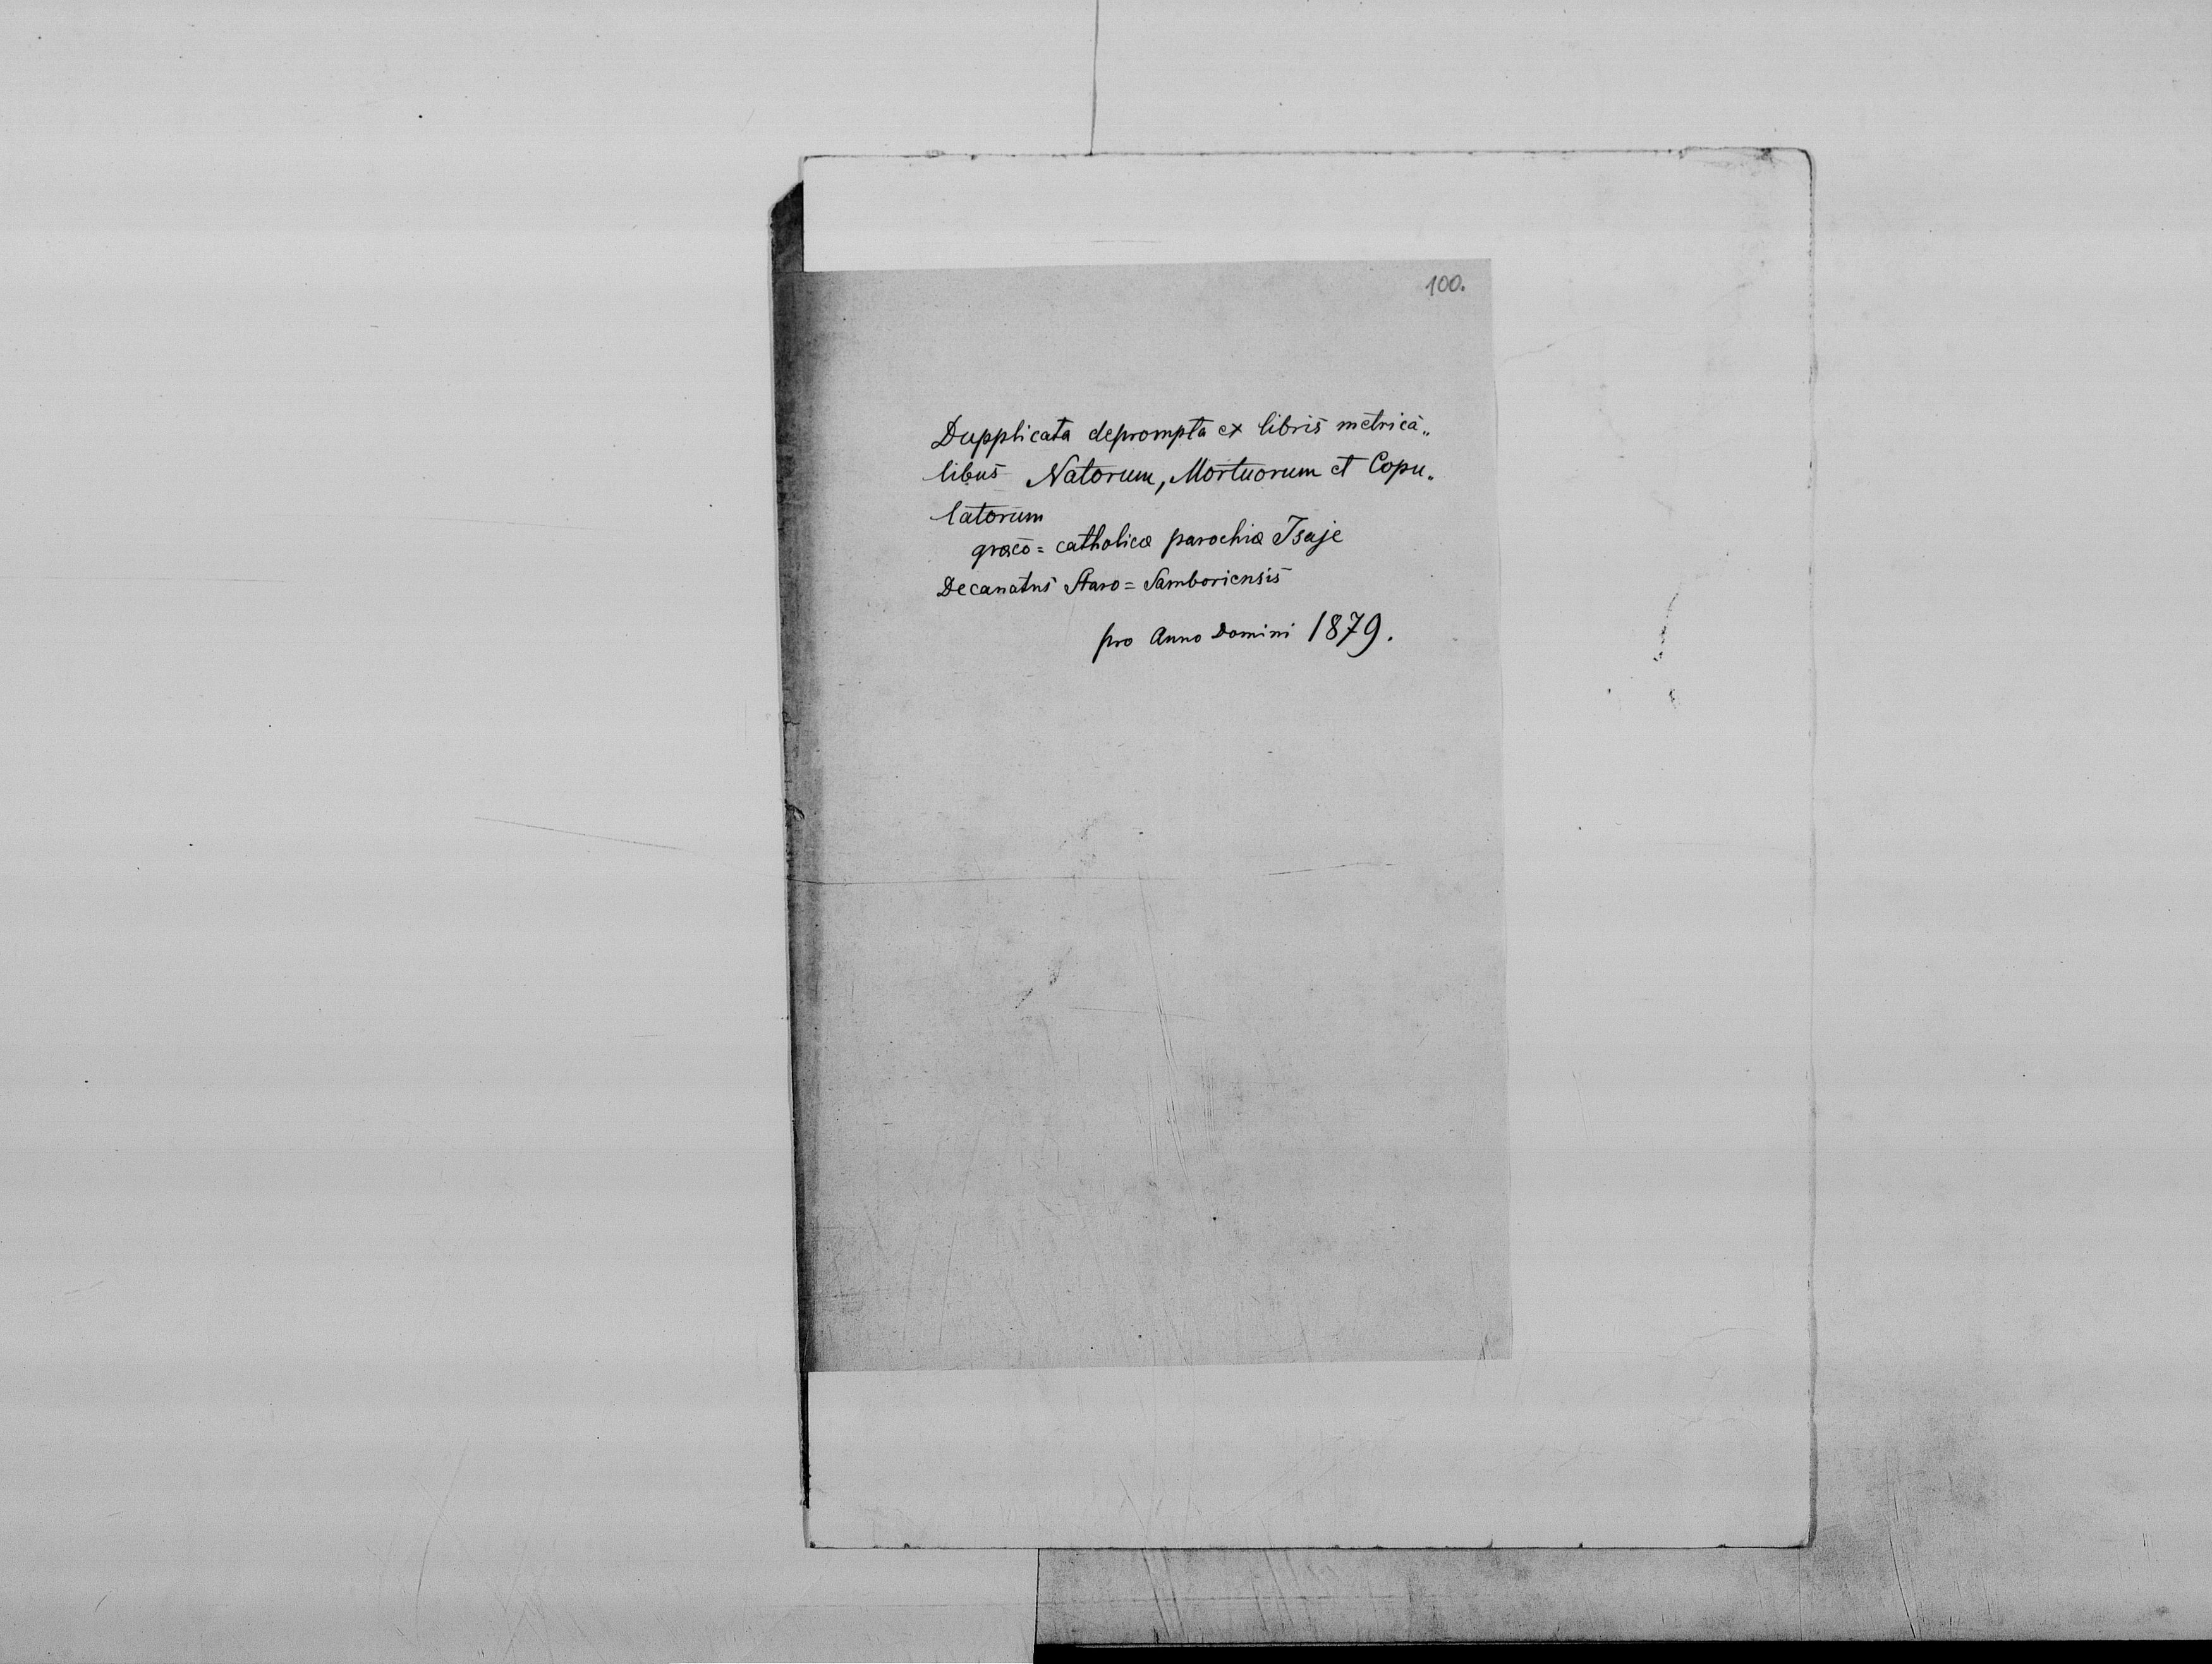 100.
Dupplicata deprompta ex libris metrica„
libus Natorum, Mortuorum et Copu„
latorum
græco= catholicæ parochiæ Isaje
Decanatus Staro= Samboriensis
pro Anno Domini 1879.